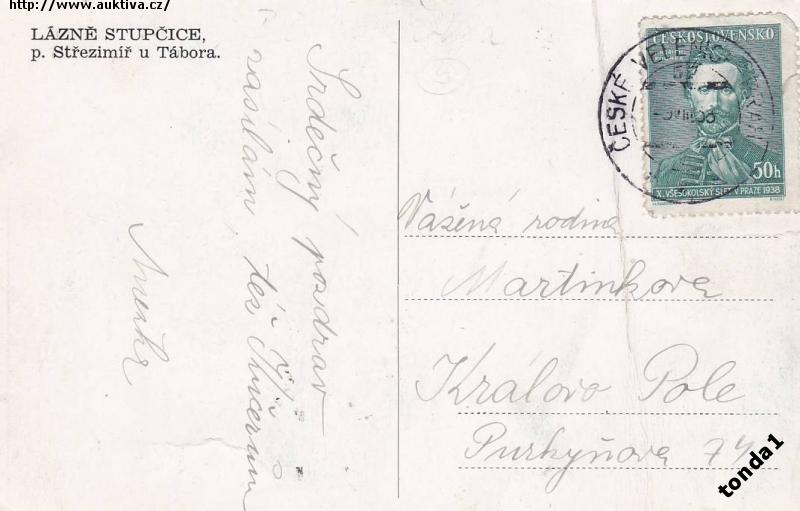 http://www.auktiva.cz/
LÁZNĚ STUPČICE,
p. Střezimíř u Tábora.
Srdečný pozdrav
zasílám též
ČESKOSLOVENSKO
50h
X. VŠESOKOLSKÝ SLET V PRAZE 1938
ČESKÉ VELENICE
Vážená rodina
Martinkova
Královo Pole
Purkyňova 74
tonda1